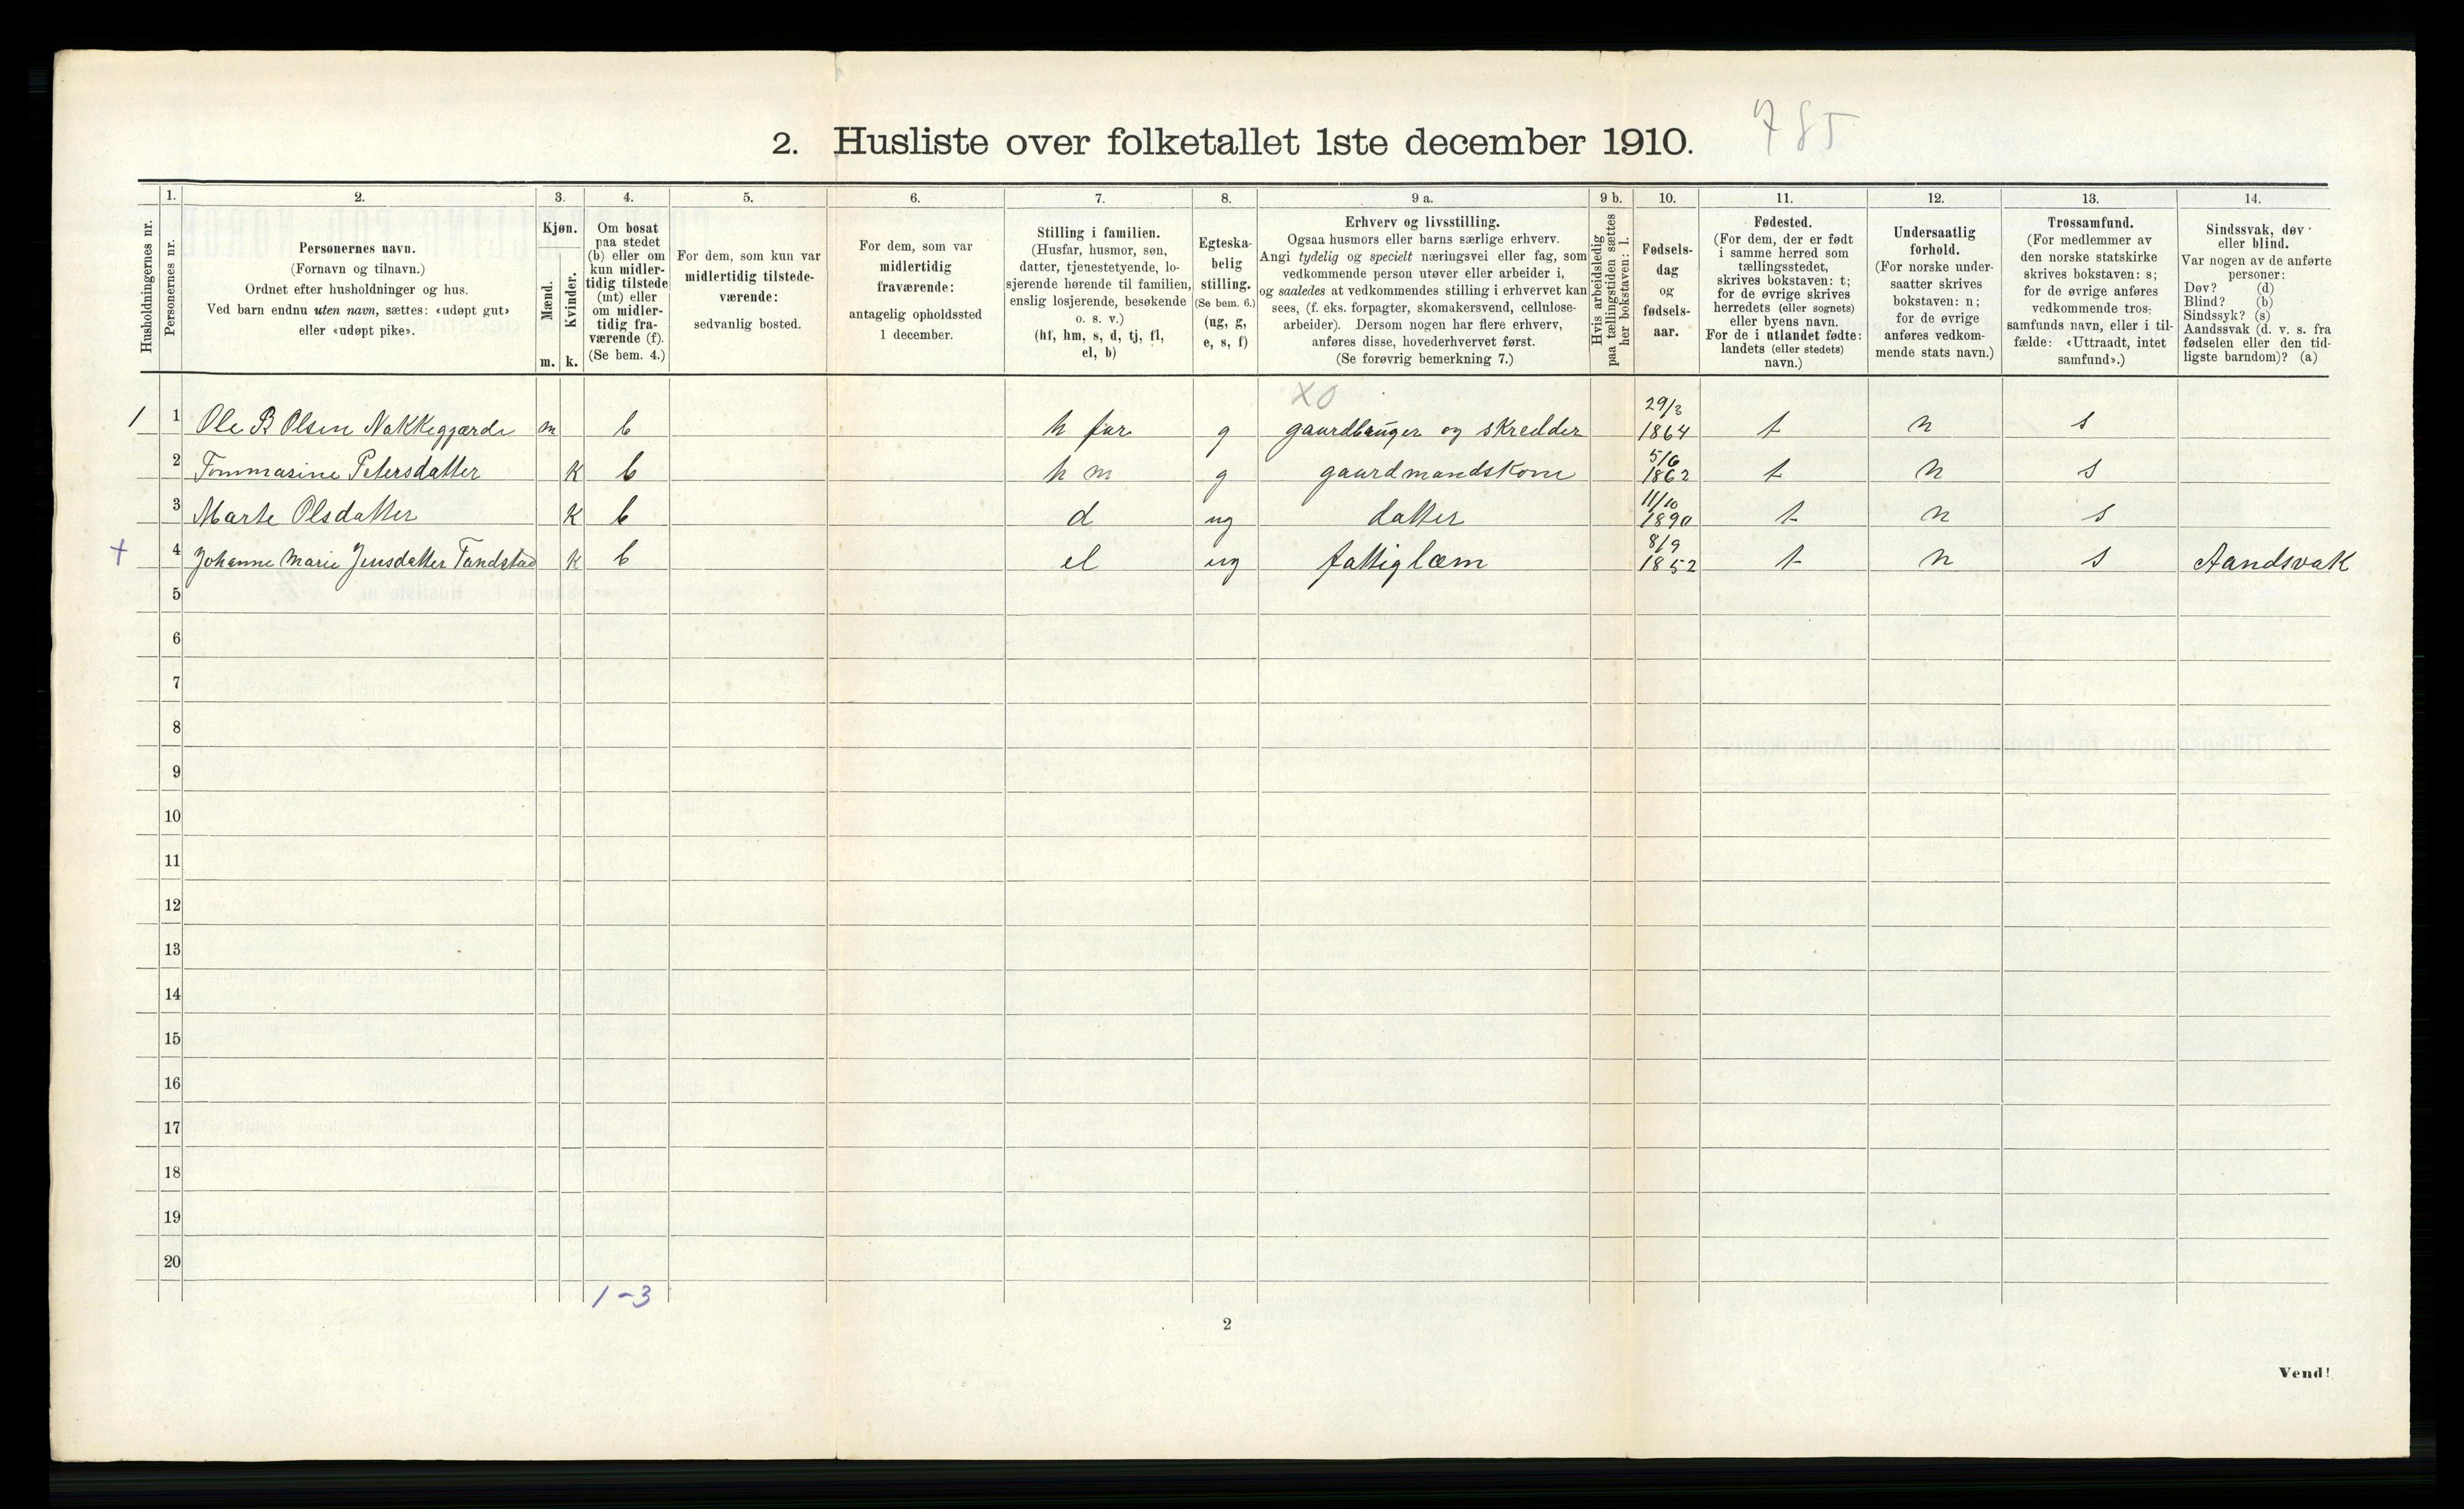 2. Husliste over folketallet 1ste december 1910. 785
Husholdningernes nr.
1. Personernes nr.
2. Personernes navn.
(Fornavn og tilnavn.)
Ordnet efter husholdninger og hus.
Ved barn endnu uten navn, sættes: «udøpt gut»
eller «udøpt pike».
3. Kjøn.
Mænd. Kvinder.
m. k.
4. Om bosat
paa stedet
(b) eller om
kun midler-
tidig tilstede
(mt) eller
om midler-
tidig fra-
værende (f).
(Se bem. 4.)
5. For dem, som kun var
midlertidig tilstede-
værende:
sedvanlig bosted.
6. For dem, som var
midlertidig
fraværende:
antagelig opholdssted
1 december.
7. Stilling i familien.
(Husfar, husmor, søn,
datter, tjenestetyende, lo-
sjerende hørende til familien,
enslig losjerende, besøkende
o. s. v.)
(hf, hm, s, d, tj, fl,
el, b)
8. Egteska-
belig
stilling.
(Se bem. 6.)
(ug, g,
e, s, f)
9 a. Erhverv og livsstilling.
Ogsaa husmors eller barns særlige erhverv.
Angi tydelig og specielt næringsvei eller fag, som
vedkommende person utøver eller arbeider i,
og saaledes at vedkommendes stilling i erhvervet kan
sees, (f. eks. forpagter, skomakersvend, cellulose-
arbeider). Dersom nogen har flere erhverv,
anføres disse, hovederhvervet først.
(Se forøvrig bemerkning 7.)
9 b. Hvis arbeidsledig
paa tællingstiden sættes
her bokstaven: l.
10. Fødsels-
dag
og
fødsels-
aar.
11. Fødested.
(For dem, der er født
i samme herred som
tællingsstedet,
skrives bokstaven: t;
for de øvrige skrives
herredets (eller sognets)
eller byens navn.
For de i utlandet fødte:
landets (eller stedets)
navn.)
12. Undersaatlig
forhold.
(For norske under-
saatter skrives
bokstaven: n;
for de øvrige
anføres vedkom-
mende stats navn.)
13. Trossamfund.
(For medlemmer av
den norske statskirke
skrives bokstaven: s;
for de øvrige anføres
vedkommende tros-
samfunds navn, eller i til-
fælde: «Uttraadt, intet
samfund».)
14. Sindssvak, døv
eller blind.
Var nogen av de anførte
personer:
Døv? (d)
Blind? (b)
Sindssyk? (s)
Aandssvak (d. v. s. fra
fødselen eller den tid-
ligste barndom)? (a)
XO
1 1 Ole B Olsen Nakkegjærde m b h far g gaardbruger og skredder 29/3 1864 t n s
2 Tommasine Petersdatter K b h m g gaardmandskone 5/6 1862 t n s
3 Marte Olsdatter K b d ug datter 11/10 1890 t n s
+ 4 Johanne Marie Jensdatter Tandstad K b el ug fattiglæm 8/9 1852 t n s Aandsvak
5
6
7
8
9
10
11
12
13
14
15
16
17
18
19
20
1-3
2
Vend!